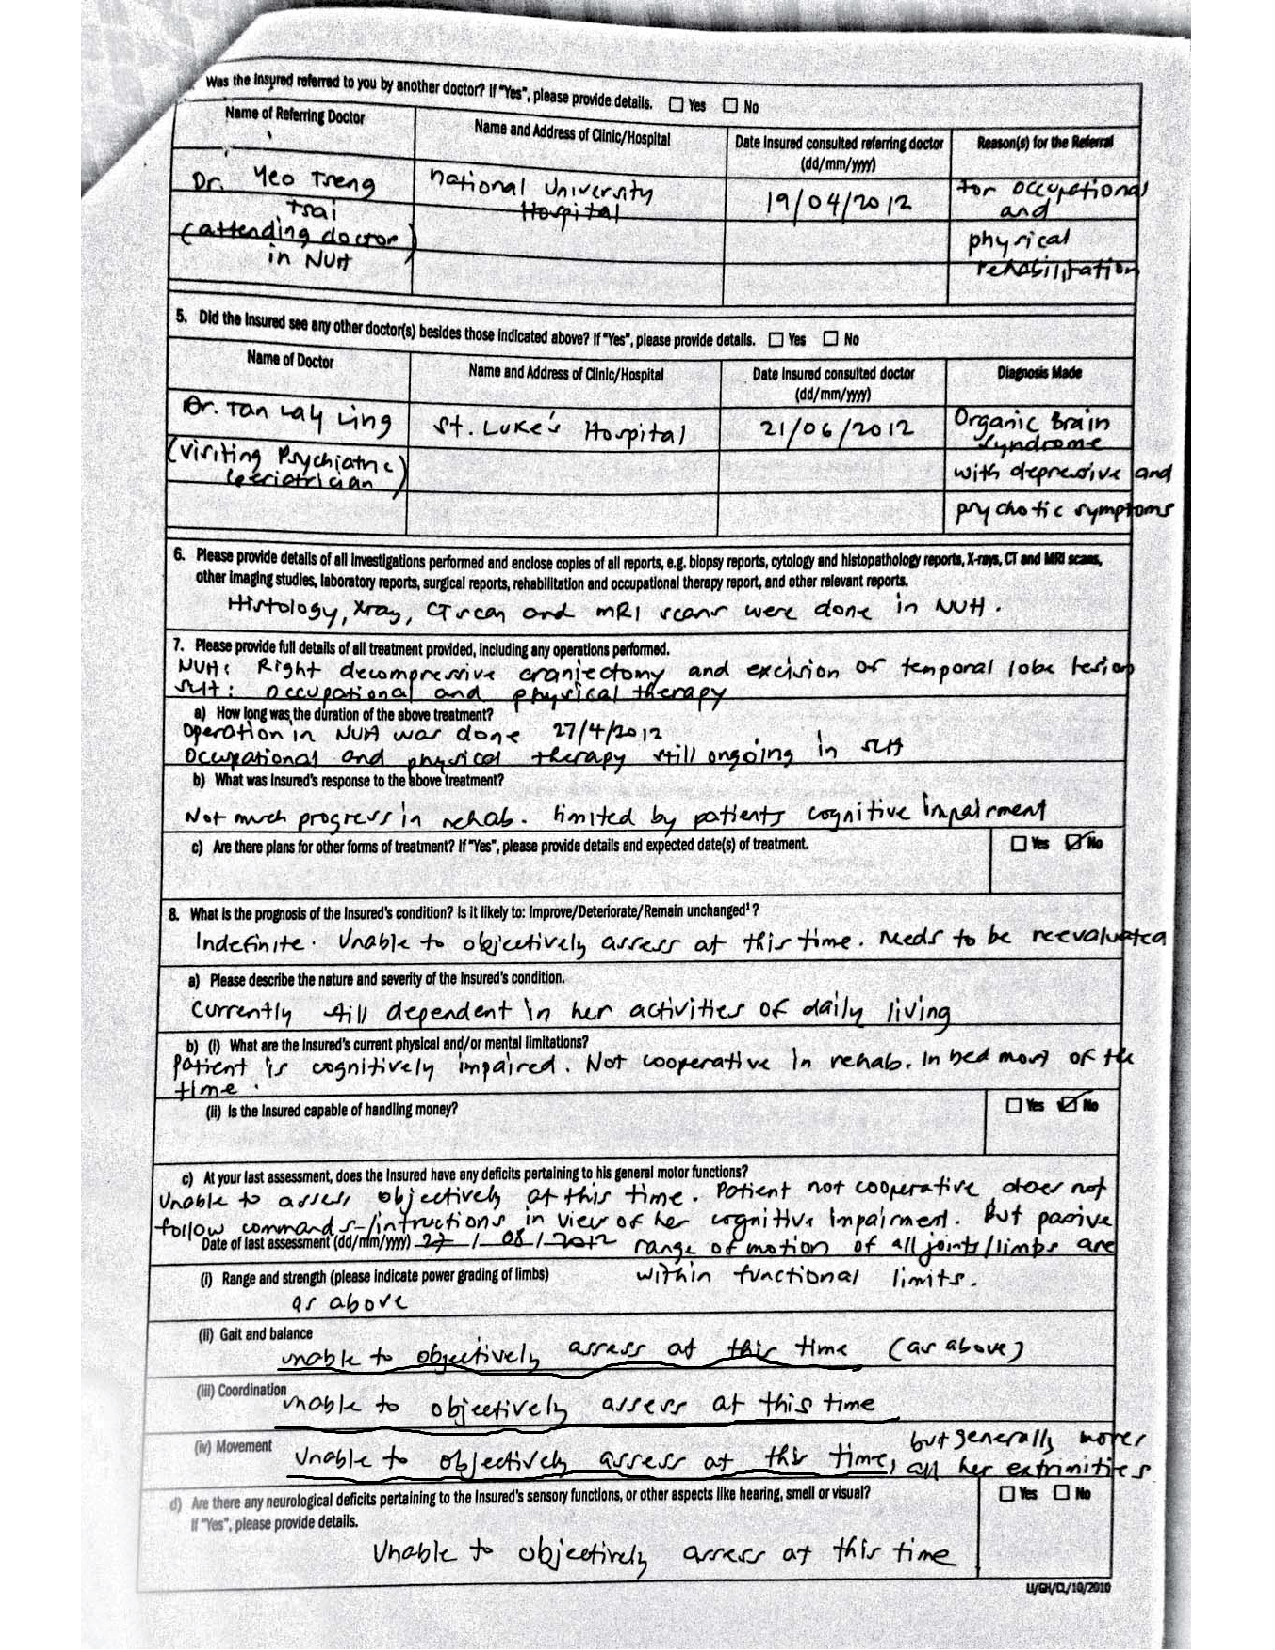 Was the Insured referred to you by another doctor? If "Yes", please provide details. ☐ Yes ☐ No
Name of Referring Doctor
Name and Address of Clinic/Hospital
Date Insured consulted referring doctor
(dd/mm/yyyy)
Reason(s) for the Referral
Dr. Yeo Tseng
Tsai
(attending doctor)
in NUH
National University
Hospital
19/04/2012
for occupational
and
physical
rehabilitation
5. Did the Insured see any other doctor(s) besides those indicated above? If "Yes", please provide details. ☐ Yes ☐ No
Name of Doctor
Name and Address of Clinic/Hospital
Date Insured consulted doctor
(dd/mm/yyyy)
Diagnosis Made
Dr. Tan Lay Ling
(Visiting Psychiatric
Geriatrician)
St. Luke's Hospital
21/06/2012
Organic Brain
Syndrome
with depressive and
psychotic symptoms
6. Please provide details of all investigations performed and enclose copies of all reports, e.g. biopsy reports, cytology and histopathology reports, X-rays, CT and MRI scans,
other imaging studies, laboratory reports, surgical reports, rehabilitation and occupational therapy report, and other relevant reports.
Histology, Xray, CT scan and MRI scans were done in NUH.
7. Please provide full details of all treatment provided, including any operations performed.
NUH: Right decompressive craniectomy and excision of temporal lobe lesion
SLH: Occupational and physical therapy
a) How long was the duration of the above treatment?
Operation in NUH was done 27/4/2012
Occupational and physical therapy still ongoing in SLH
b) What was Insured's response to the above treatment?
Not much progress in rehab. limited by patients cognitive impairment
c) Are there plans for other forms of treatment? If "Yes", please provide details and expected date(s) of treatment.
☐ Yes ☑ No
8. What is the prognosis of the Insured's condition? Is it likely to: Improve/Deteriorate/Remain unchanged¹?
Indefinite. Unable to objectively assess at this time. Needs to be reevaluated
a) Please describe the nature and severity of the Insured's condition.
Currently still dependent in her activities of daily living
b) (i) What are the Insured's current physical and/or mental limitations?
Patient is cognitively impaired. Not cooperative in rehab. In bed most of the
time.
(ii) Is the Insured capable of handling money?
☐ Yes ☑ No
c) At your last assessment, does the Insured have any deficits pertaining to his general motor functions?
Unable to assess objectively at this time. Patient not cooperative, does not
follow commands/intructions in view of her cognitive impairment. But passive
Date of last assessment (dd/mm/yyyy) 27/08/2012 range of motion of all joints/limbs are
within functional limits.
(i) Range and strength (please indicate power grading of limbs)
as above
(ii) Gait and balance
unable to objectively assess at this time (as above)
(iii) Coordination
unable to objectively assess at this time
(iv) Movement
Unable to objectively assess at this time, but generally moves
all her extrimities
d) Are there any neurological deficits pertaining to the Insured's sensory functions, or other aspects like hearing, smell or visual?
If "Yes", please provide details.
☐ Yes ☐ No
Unable to objectively assess at this time
LI/GH/CL/10/2010